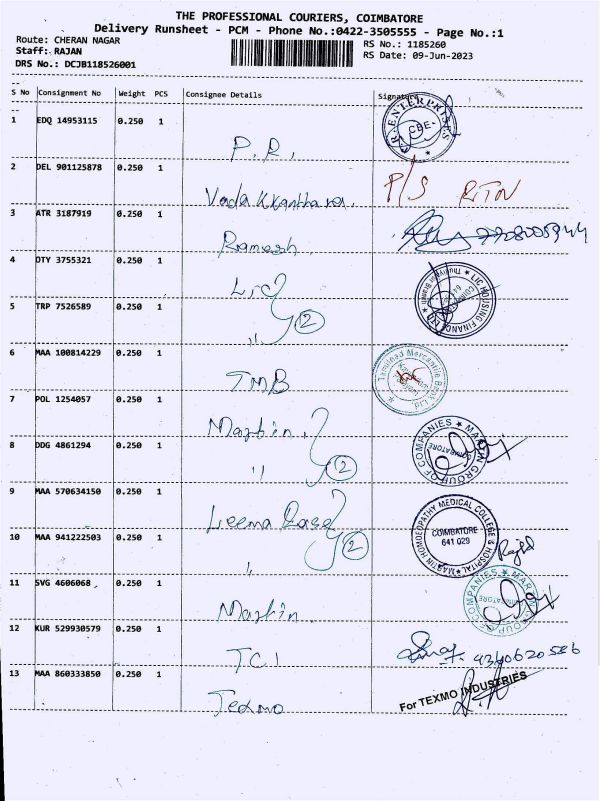 THE PROFESSIONAL COURIERS, COIMBATORE
Delivery Runsheet - PCM - Phone No.:0422-3505555 - Page No.:1
Route: CHERAN NAGAR
RS No.: 1185260
Staff: RAJAN
RS Date: 09-Jun-2023
DRS No.: DCJB118526001
S No Consignment No Weight PCS Consignee Details Signature
1 EDQ 14953115 0.250 1 P.R. R.ENTERPRISES CBE
2 DEL 901125878 0.250 1 P/S RTN
3 ATR 3187919 0.250 1 Ramesh.
4 OTY 3755321 0.250 1 Lic LIC HOUSING FINANCE LTD
5 TRP 7526589 0.250 1 ,, 2
6 MAA 100814229 0.250 1 TMB Tamilnad Mercantile Bank Ltd.
7 POL 1254057 0.250 1 Martin.
8 DDG 4861294 0.250 1 ,, 2 MARTIN GROUP OF COMPANIES COIMBATORE
9 MAA 570634150 0.250 1 Leema Rose
10 MAA 941222503 0.250 1 ,, 2 MARTIN HOMOEOPATHY MEDICAL COLLEGE & HOSPITAL COIMBATORE 641 029
11 SVG 4606068 0.250 1 Martin MARTIN GROUP OF COMPANIES COIMBATORE
12 KUR 529930579 0.250 1 TCI
13 MAA 860333850 0.250 1 Texmo For TEXMO INDUSTRIES